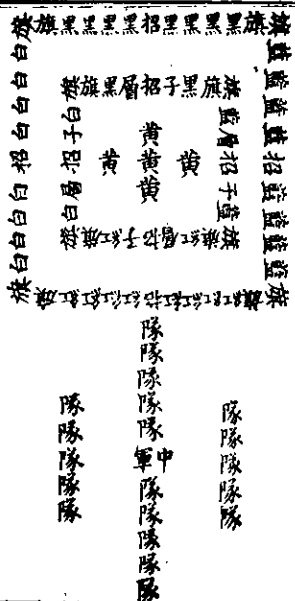 旗黑黑黑黑招黑黑黑黑旗
旗藍藍藍藍招藍藍藍藍旗
旗紅紅紅紅招紅紅紅紅旗
旗白白白白招白白白白旗
旗黑層招子黑旗
旗藍層招子藍旗
旗紅層招子紅旗
旗白層招子白旗
黃
黃黃黃
黃
隊隊隊隊隊
隊隊隊隊隊
中軍
隊隊隊隊隊
隊隊隊隊隊